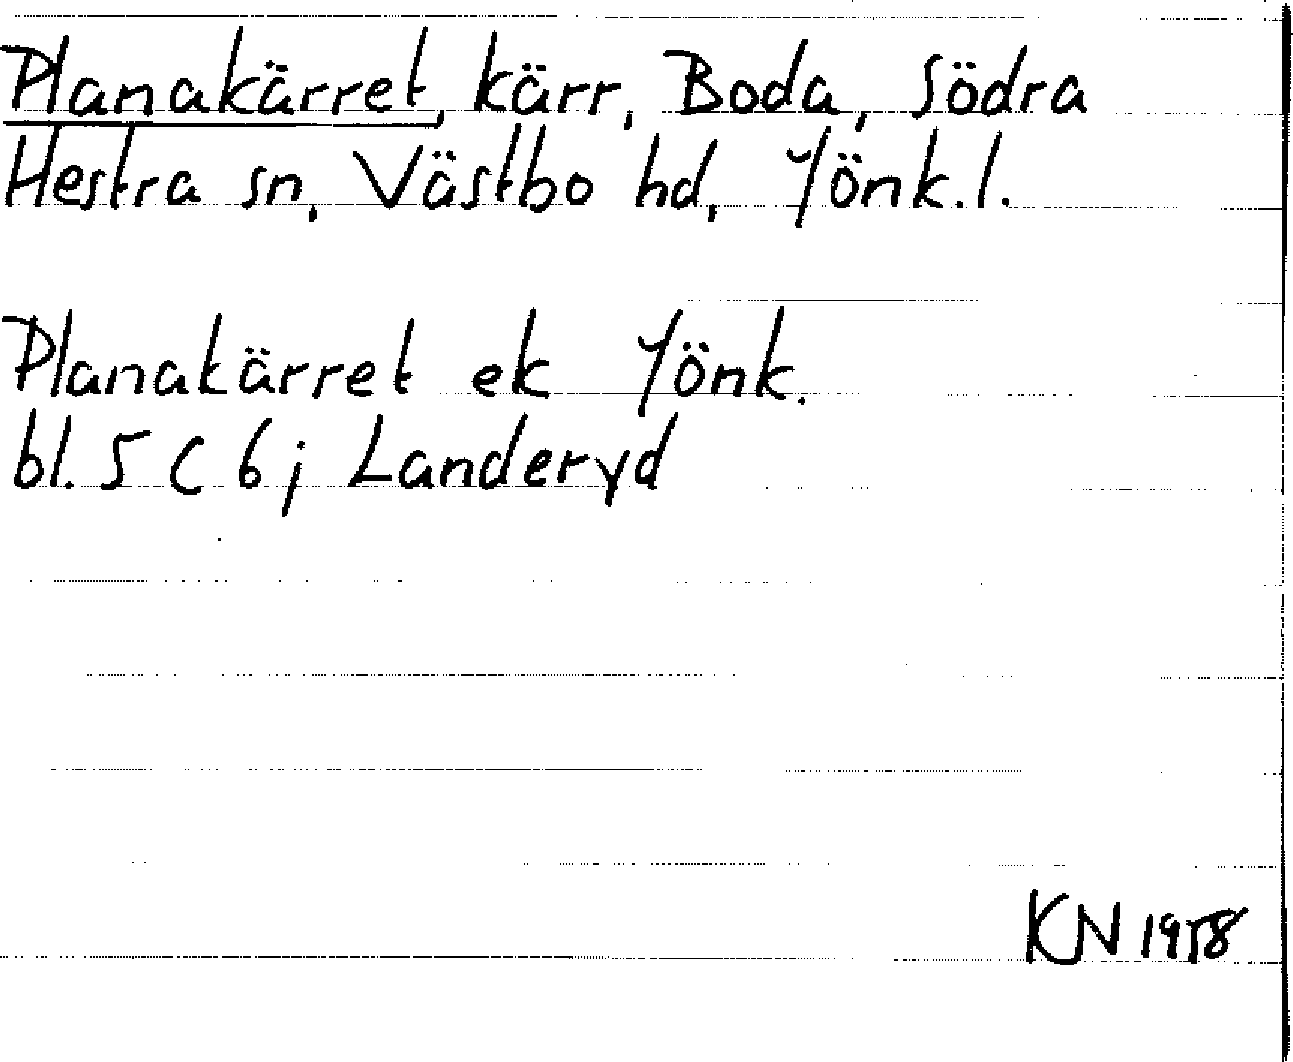 Planakärret, kärr, Boda, Södra
Hestra sn, Västbo hd, Jönk.l.
Planakärret ek Jönk.
bl. 5 C 6 j Landeryd
KN 1958